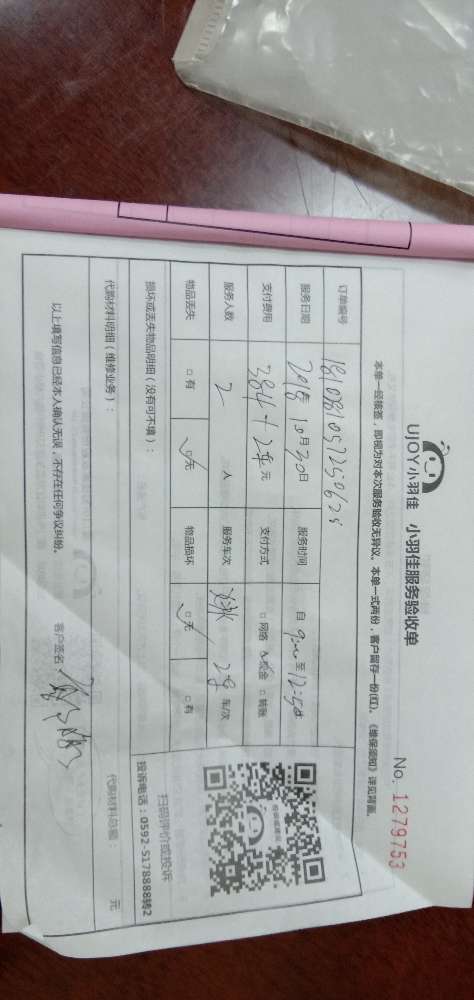 UJOY小羽佳 小羽佳服务验收单
No. 1279753
本单一经核签，即视为对本次服务验收无异议。本单一式两份，客户留存一份(红)。《维保须知》详见背面。
订单编号
服务日期 2018年10月30日 服务时间 自 9:00 至 12:50
支付费用 384+24元 支付方式 □网络 □现金 □转账
服务人数 2 人 服务车次 车/次
物品丢失 □有 □无 物品损坏 □无 □有
损坏或丢失物品明细（没有可不填）：
扫码评价或投诉
投诉电话：0592-5178888转2
代购材料明细（维修业务）：
代购材料总额： 元
以上填写信息已经本人确认无误，不存在任何争议纠纷。
客户签名